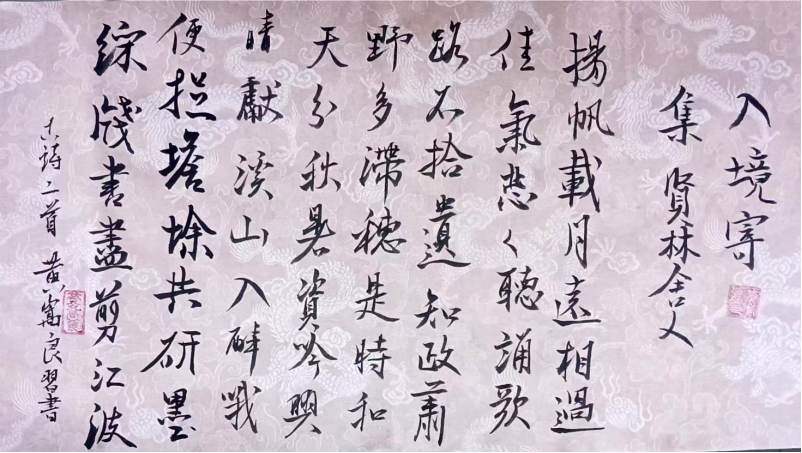 入境寄
集賢林舍人
揚帆載月遠相過
佳氣葱々聽誦歌
路不拾遺知政肅
野多滯穗是時和
天分秋暑資吟興
晴獻溪山入醉哦
便捉蟾蜍共研墨
綵牋書盡剪江波
古詩二首 黄富良習書